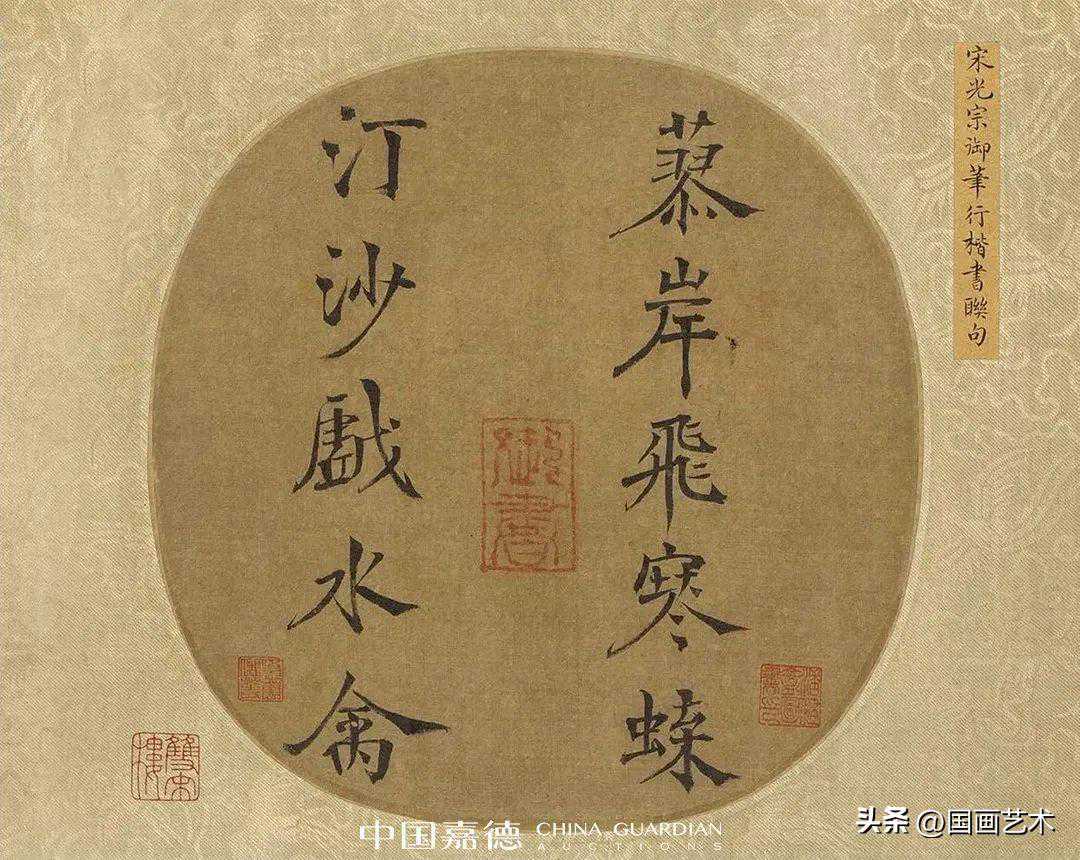 宋光宗御筆行楷書聯句
蓼岸飛寒蝶
御書
汀沙戲水禽
雙宋樓
中国嘉德 CHINA GUARDIAN
AUCTIONS
头条 @国画艺术